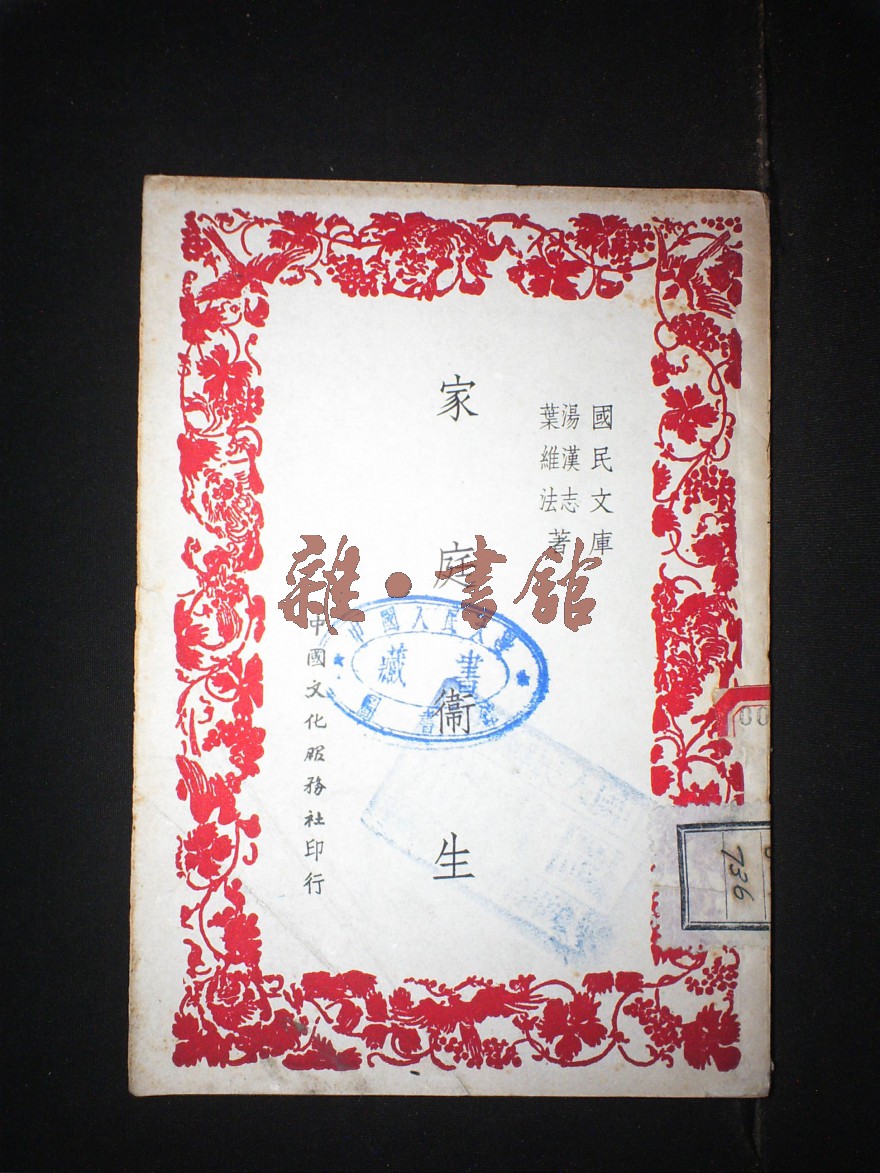 國民文庫
湯漢志
葉維法
著
家庭衞生
中國文化服務社印行
雜·書館
中國人民大學
藏書
圖書館
00
736